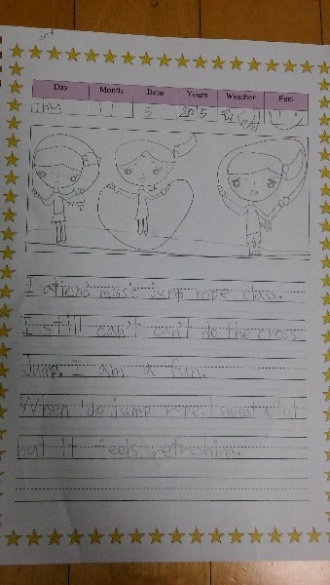 Sat
Day Month Date Years Weather Feel
11 5 2015
I attend music jump rope class.
I still can't can't do the cross
Jump. I am a fun.
When I do jump rope, I sweat a lot
but it feels refreshim.